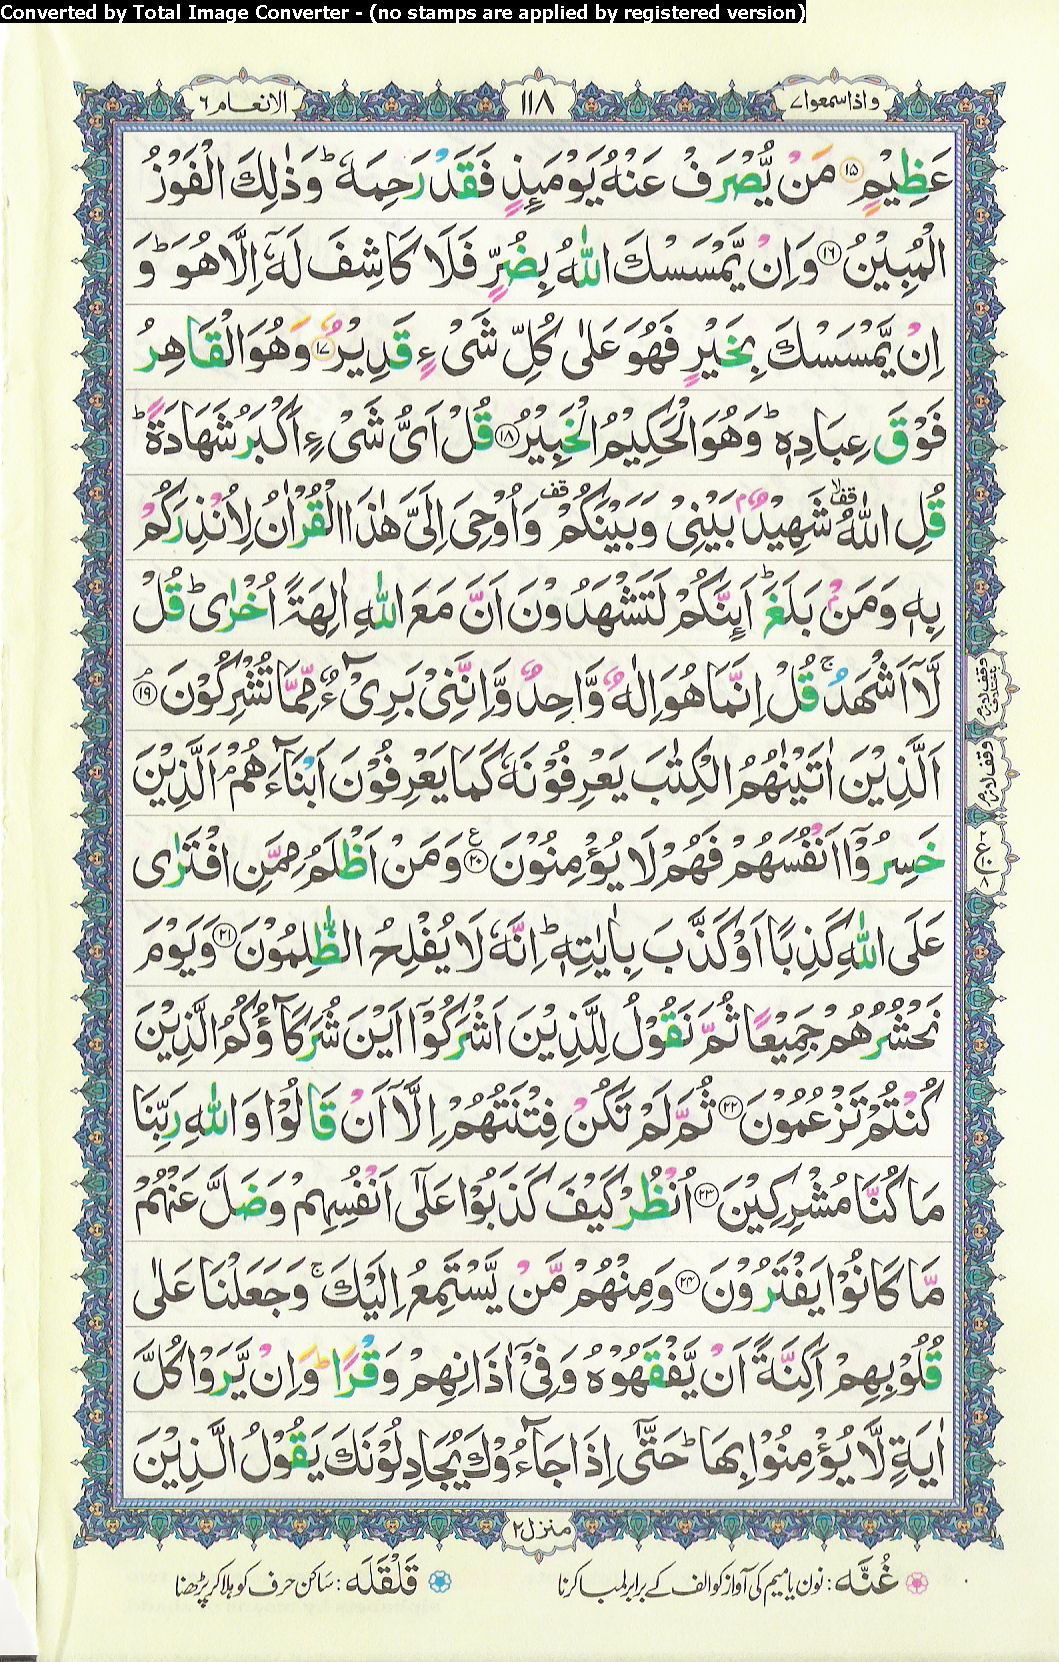 Converted by Total Image Converter - (no stamps are applied by registered version)
واذاسمعوا ٧
١١٨
الانعام ٦
عَظِيْمٍ ۝١٥ مَنْ يُّصْرَفْ عَنْهُ يَوْمَىِٕذٍ فَقَدْ رَحِمَهٗ ؕ وَذٰلِكَ الْفَوْزُ
الْمُبِيْنُ ۝١٦ وَاِنْ يَّمْسَسْكَ اللّٰهُ بِضُرٍّ فَلَا كَاشِفَ لَهٗۤ اِلَّا هُوَ ؕ وَ
اِنْ يَّمْسَسْكَ بِخَيْرٍ فَهُوَ عَلٰى كُلِّ شَىْءٍ قَدِيْرٌ ۝١٧ وَهُوَ الْقَاهِرُ
فَوْقَ عِبَادِهٖ ؕ وَهُوَ الْحَكِيْمُ الْخَبِيْرُ ۝١٨ قُلْ اَىُّ شَىْءٍ اَكْبَرُ شَهَادَةً ؕ
قُلِ اللّٰهُ ۙقف شَهِيْدٌۢ بَيْنِىْ وَبَيْنَكُمْ قف وَاُوْحِىَ اِلَىَّ هٰذَا الْقُرْاٰنُ لِاُنْذِرَكُمْ
بِهٖ وَمَنْۢ بَلَغَ ؕ اَىِٕنَّكُمْ لَتَشْهَدُوْنَ اَنَّ مَعَ اللّٰهِ اٰلِهَةً اُخْرٰى ؕ قُلْ
لَّاۤ اَشْهَدُ ۚ قُلْ اِنَّمَا هُوَ اِلٰهٌ وَّاحِدٌ وَّاِنَّنِىْ بَرِىْٓءٌ مِّمَّا تُشْرِكُوْنَ ۝١٩ۘ
اَلَّذِيْنَ اٰتَيْنٰهُمُ الْكِتٰبَ يَعْرِفُوْنَهٗ كَمَا يَعْرِفُوْنَ اَبْنَآءَهُمْ ۘ اَلَّذِيْنَ
خَسِرُوْۤا اَنْفُسَهُمْ فَهُمْ لَا يُؤْمِنُوْنَ ۝٢٠ع وَمَنْ اَظْلَمُ مِمَّنِ افْتَرٰى
عَلَى اللّٰهِ كَذِبًا اَوْ كَذَّبَ بِاٰيٰتِهٖ ؕ اِنَّهٗ لَا يُفْلِحُ الظّٰلِمُوْنَ ۝٢١ وَيَوْمَ
نَحْشُرُهُمْ جَمِيْعًا ثُمَّ نَقُوْلُ لِلَّذِيْنَ اَشْرَكُوْۤا اَيْنَ شُرَكَآؤُكُمُ الَّذِيْنَ
كُنْتُمْ تَزْعُمُوْنَ ۝٢٢ ثُمَّ لَمْ تَكُنْ فِتْنَتُهُمْ اِلَّاۤ اَنْ قَالُوْا وَاللّٰهِ رَبِّنَا
مَا كُنَّا مُشْرِكِيْنَ ۝٢٣ اُنْظُرْ كَيْفَ كَذَبُوْا عَلٰۤى اَنْفُسِهِمْ وَضَلَّ عَنْهُمْ
مَّا كَانُوْا يَفْتَرُوْنَ ۝٢٤ وَمِنْهُمْ مَّنْ يَّسْتَمِعُ اِلَيْكَ ۚ وَجَعَلْنَا عَلٰى
قُلُوْبِهِمْ اَكِنَّةً اَنْ يَّفْقَهُوْهُ وَفِىْۤ اٰذَانِهِمْ وَقْرًا ؕ وَاِنْ يَّرَوْا كُلَّ
اٰيَةٍ لَّا يُؤْمِنُوْا بِهَا ؕ حَتّٰۤى اِذَا جَآءُوْكَ يُجَادِلُوْنَكَ يَقُوْلُ الَّذِيْنَ
منزل ٢
غُنَّه : نون یا میم کی آواز کو الف کے برابر لمبا کرنا
قَلْقَلَه : ساکن حرف کو ہلا کر پڑھنا